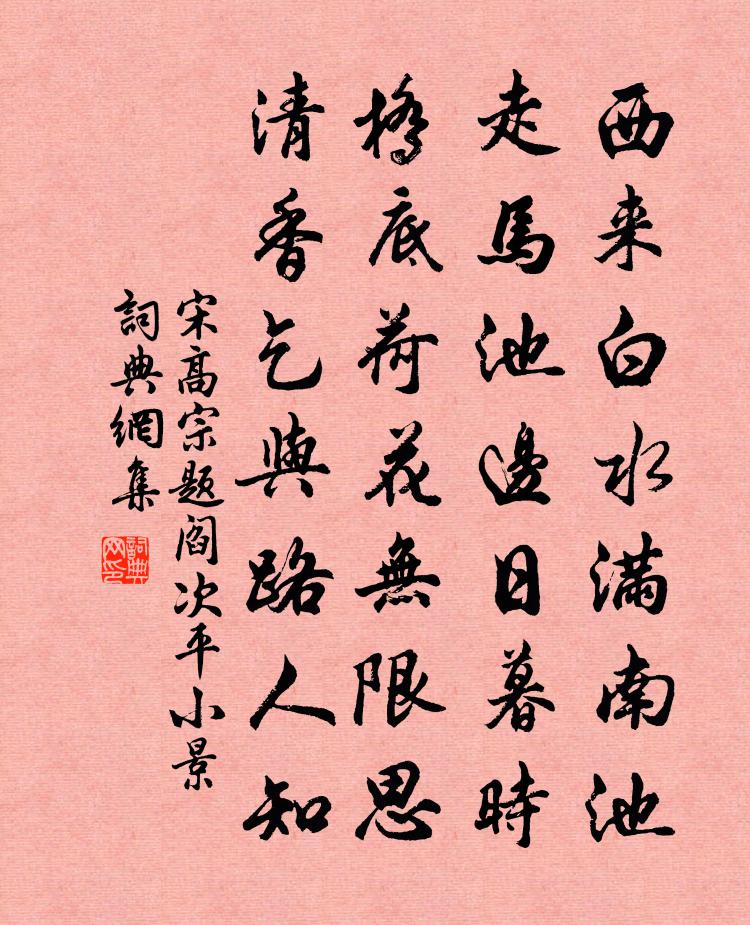 西来白水滿南池
走馬池邊日暮時
橋底荷花無限思
清香乞與路人知
宋高宗題閻次平小景
詞典網集
詞典网印